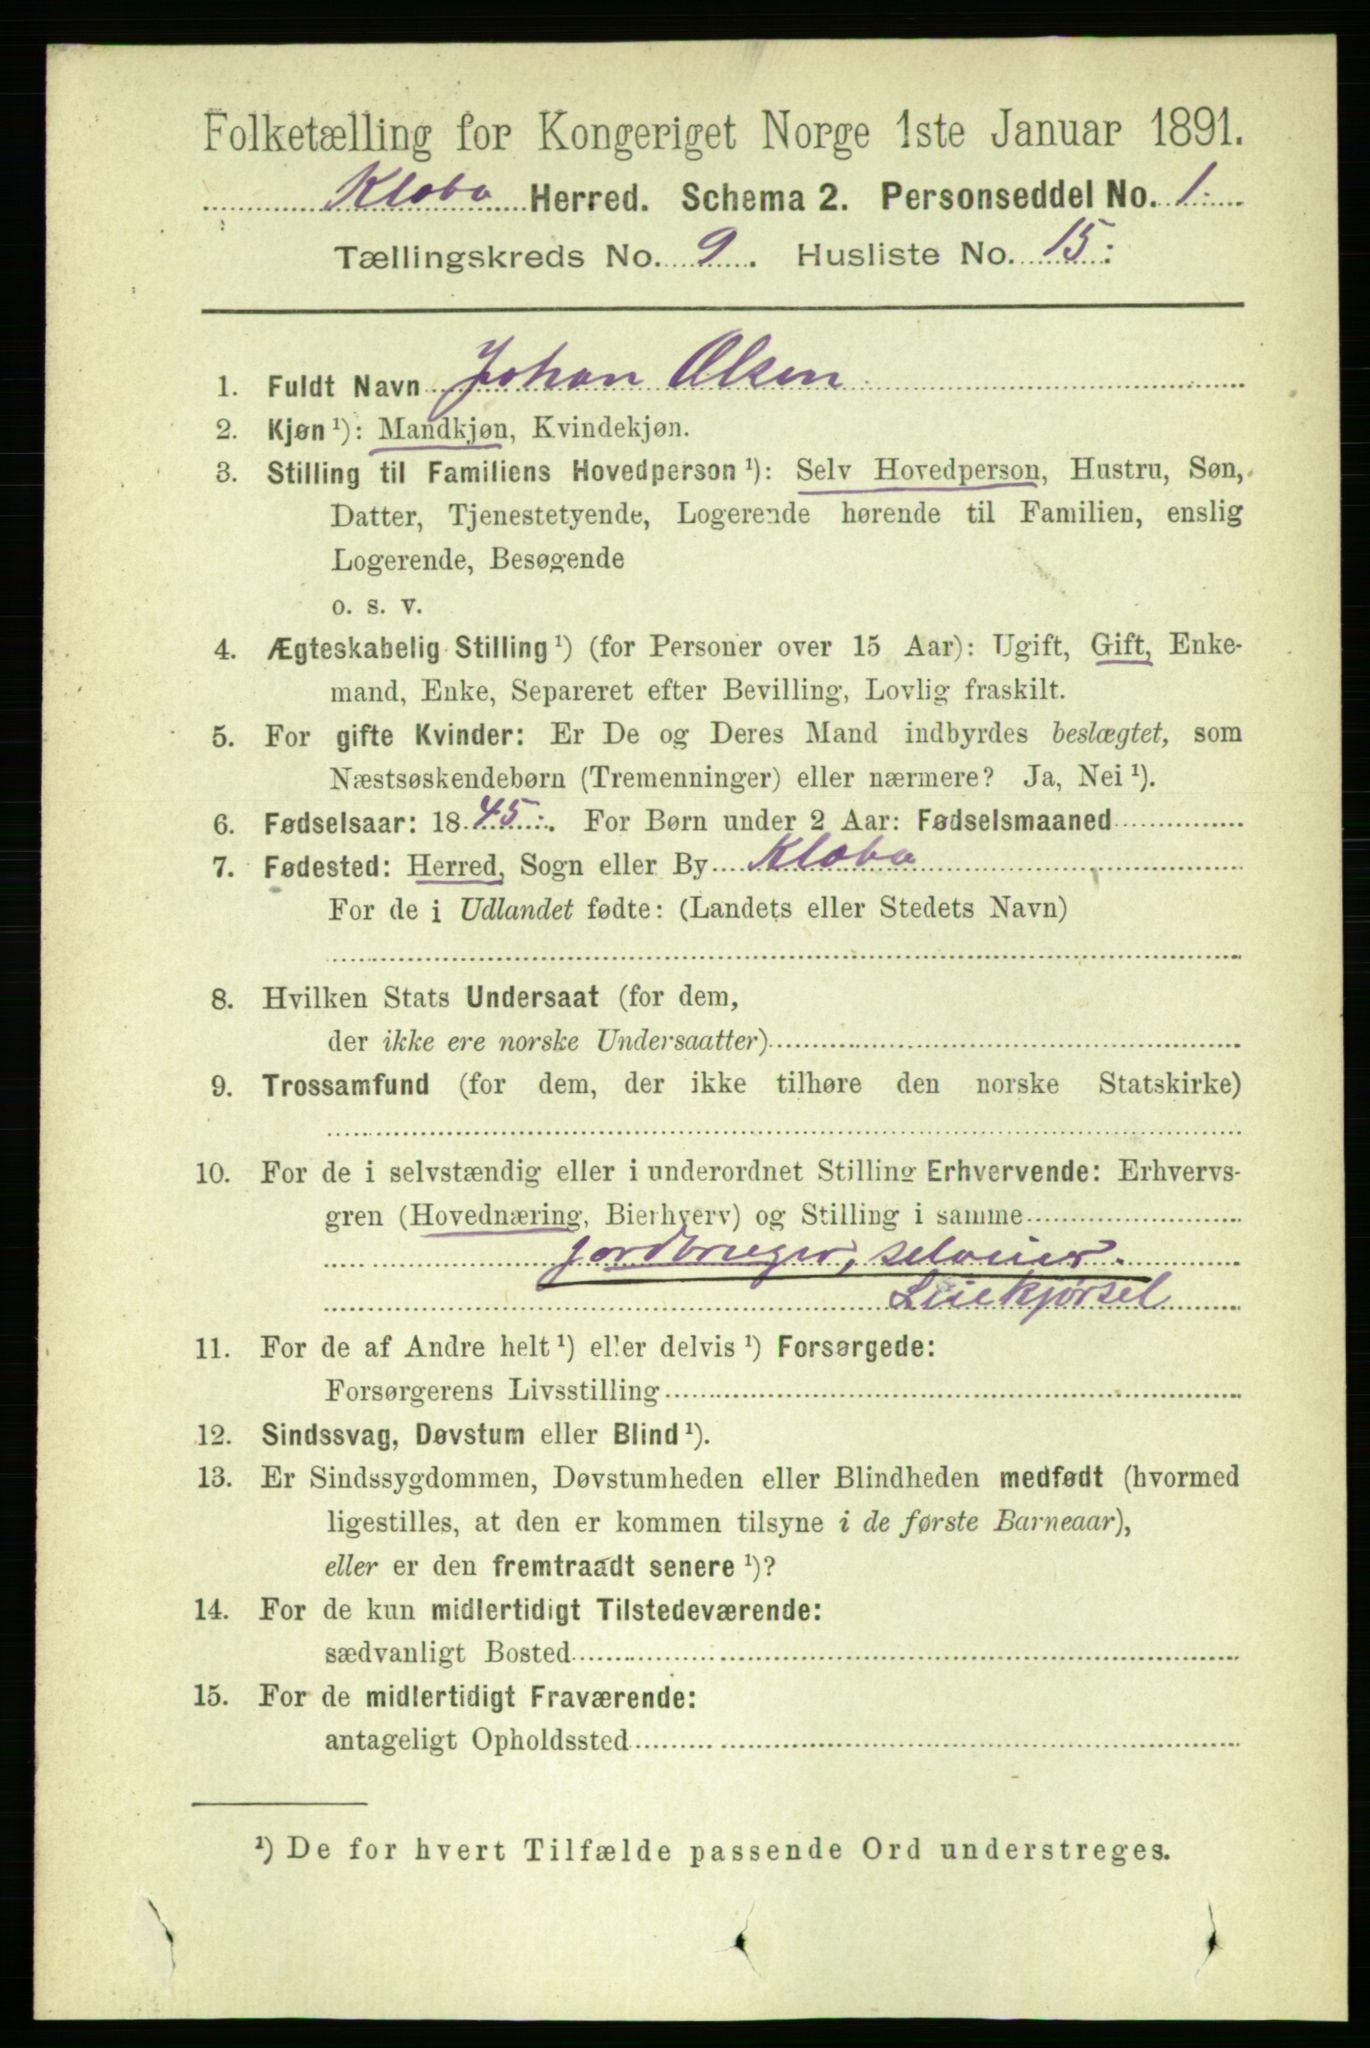 Folketælling for Kongeriget Norge 1ste Januar 1891.
Klæbo Herred. Schema 2. Personseddel No. 1.
Tællingskreds No. 9. Husliste No. 15.
1. Fuldt Navn Johan Olsen
2. Kjøn ¹): Mandkjøn, Kvindekjøn.
3. Stilling til Familiens Hovedperson ¹): Selv Hovedperson, Hustru, Søn,
Datter, Tjenestetyende, Logerende hørende til Familien, enslig
Logerende, Besøgende
o. s. v.
4. Ægteskabelig Stilling ¹) (for Personer over 15 Aar): Ugift, Gift, Enke-
mand, Enke, Separeret efter Bevilling, Lovlig fraskilt.
5. For gifte Kvinder: Er De og Deres Mand indbyrdes beslægtet, som
Næstsøskendebørn (Tremenninger) eller nærmere? Ja, Nei ¹).
6. Fødselsaar: 1845. For Børn under 2 Aar: Fødselsmaaned
7. Fødested: Herred, Sogn eller By Klæbo
For de i Udlandet fødte: (Landets eller Stedets Navn)
8. Hvilken Stats Undersaat (for dem,
der ikke ere norske Undersaatter)
9. Trossamfund (for dem, der ikke tilhøre den norske Statskirke)
10. For de i selvstændig eller i underordnet Stilling Erhvervende: Erhvervs-
gren (Hovednæring, Bierhverv) og Stilling i samme
jordbruger, seleier.
Leiekjørsel
11. For de af Andre helt ¹) eller delvis ¹) Forsørgede:
Forsørgerens Livsstilling
12. Sindssvag, Døvstum eller Blind ¹).
13. Er Sindssygdommen, Døvstumheden eller Blindheden medfødt (hvormed
ligestilles, at den er kommen tilsyne i de første Barneaar),
eller er den fremtraadt senere ¹)?
14. For de kun midlertidigt Tilstedeværende:
sædvanligt Bosted
15. For de midlertidigt Fraværende:
antageligt Opholdssted
¹) De for hvert Tilfælde passende Ord understreges.